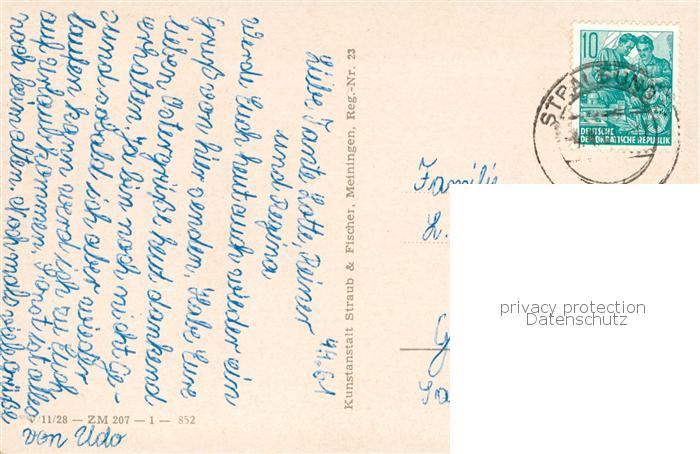 4.4.61
Liebe Tante Lotte, Reiner
und Regina
Werd Euch heut auch wieder ein
Gruß von hier senden. Habe Eure
lieben Ostergrüße heut dankend
erhalten. Ja bin noch nicht Ge-
sund sobald ich aber wieder
laufen kann werd ich zu Euch
auf Urlaub kommen. Sonst ist alles
noch beim alten. Nochmals viele Grüße
von Udo
Kunstanstalt Straub & Fischer, Meiningen, Reg.-Nr. 23
V/11/28 — ZM 207 — 1 — 852
10
DEUTSCHE
DEMOKRATISCHE REPUBLIK
STRALSUND
Familie
L.
G
Sa
privacy protection
Datenschutz